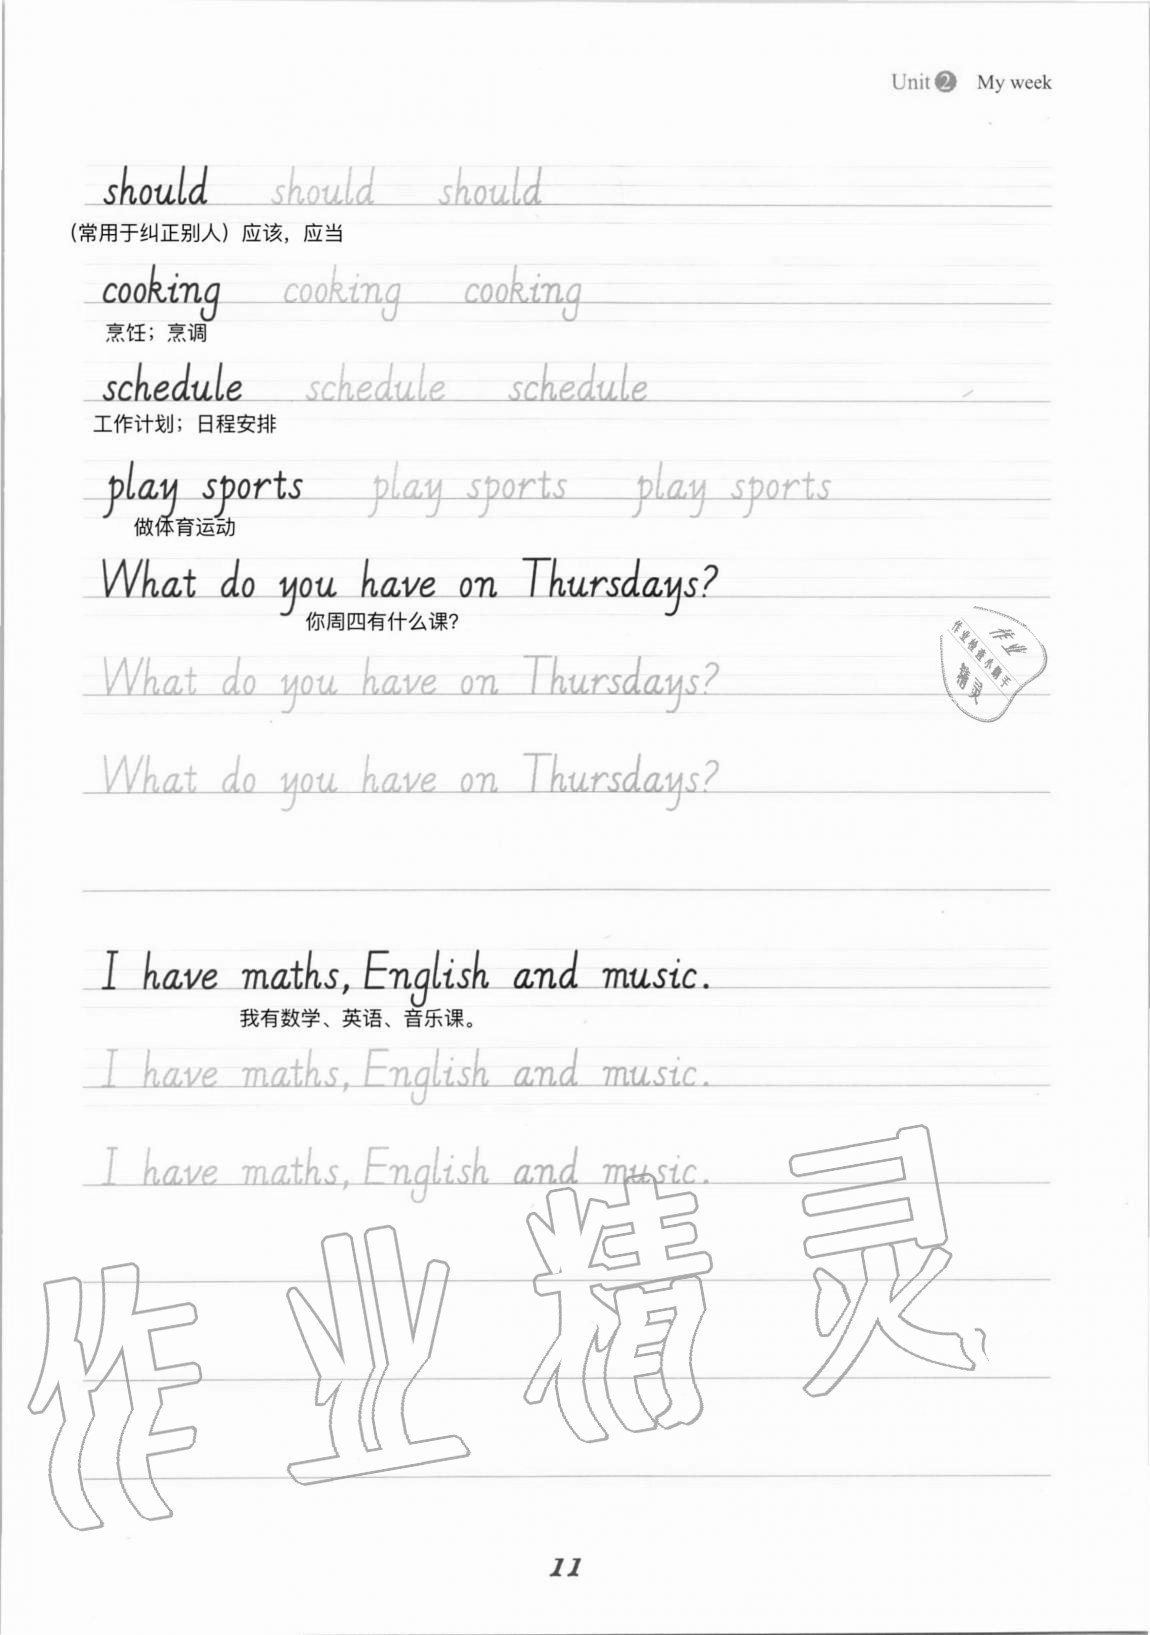 Unit 2 My week
should should should
（常用于纠正别人）应该，应当
cooking cooking cooking
烹饪；烹调
schedule schedule schedule
工作计划；日程安排
play sports play sports play sports
做体育运动
What do you have on Thursdays?
你周四有什么课？
What do you have on Thursdays?
作业
作业检查小帮手
精灵
What do you have on Thursdays?
I have maths, English and music.
我有数学、英语、音乐课。
I have maths, English and music.
I have maths, English and music.
作业精灵
11